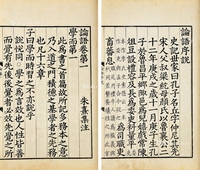 論語序說
史記世家曰孔子名丘字仲尼其先
宋人父叔梁紇母顏氏以魯襄公二
十二年庚戌之歲十一月庚子生孔
子於魯昌平鄉陬邑為兒嬉戲常陳
俎豆設禮容及長為委吏料量平
為司職吏
畜蕃息
論語卷第一
朱熹集注
學而第一
此為書之首篇故所記多務本之意
乃入道之門積德之基學者之先務
也凡十六章
子曰學而時習之不亦說乎
說悅同學之為言效也人性皆善
而覺有先後後覺者必效先覺之所